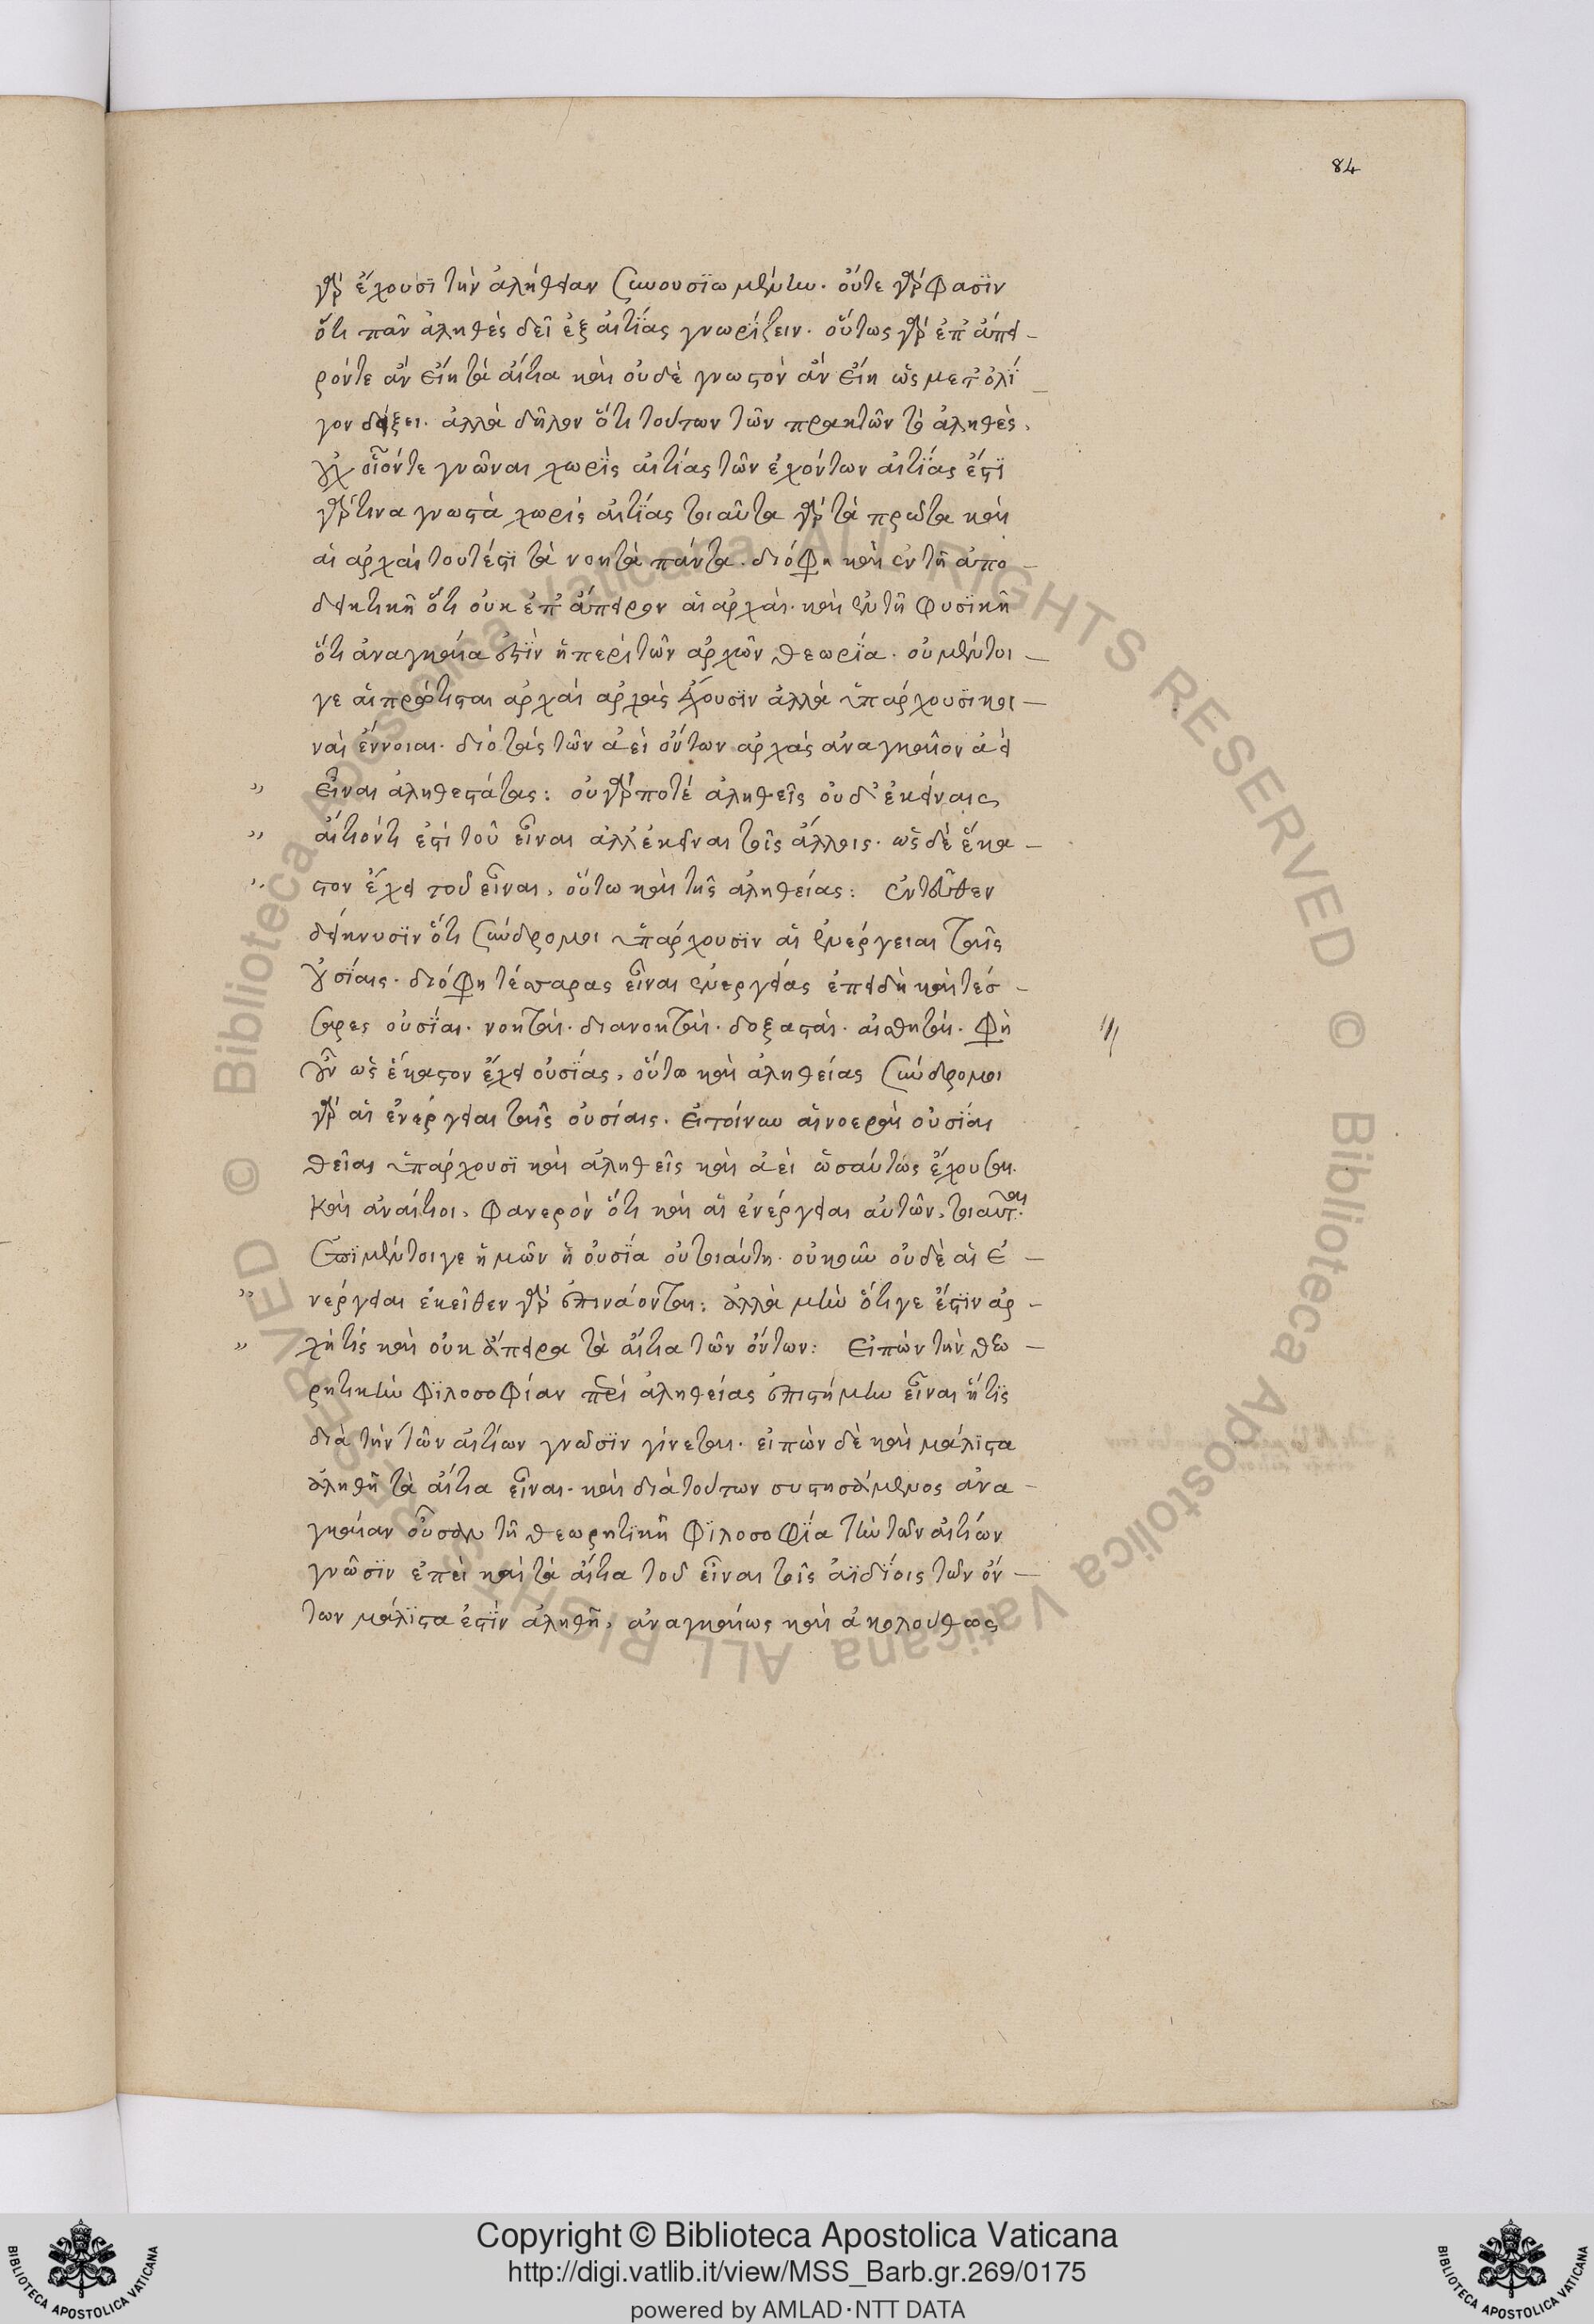 84
γὰρ ἔχουσι τὴν ἀλήθειαν συνουσιωμένην. οὔτε γὰρ φασὶν
ὅτι πᾶν ἀληθὲς δεῖ ἐξ αἰτίας γνωρίζειν. οὕτως γὰρ ἐπ' ἄπει-
ρόν τε ἂν εἴη τὰ αἴτια καὶ οὐδὲ γνωστὸν ἂν εἴη ὡς μετ' ὀλί-
γον δείξει. ἀλλὰ δῆλον ὅτι τούτων τῶν πρακτῶν τὸ ἀληθὲς,
οὐχ οἷόντε γνῶναι χωρὶς αἰτίας τῶν ἐχόντων αἰτίας ἔστι
γάρ τινα γνωστὰ χωρὶς αἰτίας τοιαῦτα γὰρ τὰ πρῶτα καὶ
αἱ ἀρχαὶ τουτέστι τὰ νοητὰ πάντα. διό φη καὶ ἐν τῆ ἀπο-
δεικτικῆ ὅτι οὐκ ἐπ' ἄπειρον αἱ ἀρχαί. καὶ ἐν τῆ φυσικῆ
ὅτι ἀναγκαία ἐστὶν ἡ περὶ τῶν ἀρχῶν θεωρία. οὐ μέντοι-
γε αἱ πρώτισται ἀρχαὶ ἀρχὰς ἔχουσιν ἀλλὰ ὑπάρχουσι κοι-
ναὶ ἔννοιαι. διὸ τὰς τῶν ἀεὶ ὄντων ἀρχὰς ἀναγκαῖον ἀεὶ
" εἶναι ἀληθεστάτας: οὐ γάρ ποτέ ἀληθεῖς οὐδ' ἐκείναις
" αἴτιόν τι ἐστὶ τοῦ εἶναι ἀλλ' ἐκείναι τοῖς ἄλλοις. ὡς δὲ ἕκα-
" στον ἔχει τοῦ εἶναι, οὕτω καὶ τῆς ἀληθείας: ἐντεῦθεν
δείκνυσιν ὅτι σύνδρομοι ὑπάρχουσιν αἱ ἐνέργειαι ταῖς
οὐσίαις. διό φη τέσσαρας εἶναι ἐνεργείας ἐπειδὴ καὶ τέσ-
σαρες οὐσίαι. νοηταί. διανοηταί. δοξασταί. αἰσθηταί. φὴ
οὖν ὡς ἕκαστον ἔχει οὐσίας, οὕτω καὶ ἀληθείας σύνδρομοι
γὰρ αἱ ἐνέργειαι ταῖς οὐσίαις. εἰ τοίνυν αἱ νοεραὶ οὐσίαι
θεῖαι ὑπάρχουσι καὶ ἀληθεῖς καὶ ἀεὶ ὡσαύτως ἔχουσαι.
καὶ ἀναίτιοι, φανερὸν ὅτι καὶ αἱ ἐνέργειαι αὐτῶν, τοιαῦται.
ἐπὶ μέντοιγε ἡμῶν ἡ οὐσία οὐ τοιαύτη. οὐκοῦν οὐδὲ αἱ ἐ-
" νέργειαι ἐκεῖθεν γὰρ ἐπινάονται: ἀλλὰ μὴν ὅτι γε ἔστιν ἀρ-
" χή τις καὶ οὐκ ἄπειρα τὰ αἴτια τῶν ὄντων: εἰπὼν τὴν θεω-
ρητικὴν φιλοσοφίαν περὶ ἀληθείας ἐπιστήμην εἶναι ἥτις
διὰ τὴν τῶν αἰτίων γνῶσιν γίνεται. εἰπὼν δὲ καὶ μάλιστα
ἀληθῆ τὰ αἴτια εἶναι. καὶ διὰ τούτων συστησάμενος ἀνα-
γκαίαν οὖσαν τῆ θεωρητικῆ φιλοσοφία τὴν τῶν αἰτίων
γνῶσιν ἐπεὶ καὶ τὰ αἴτια τοῦ εἶναι τοῖς ἀϊδίοις τῶν ὄν-
των μάλιστα ἐστὶν ἀληθῆ, ἀναγκαίως καὶ ἀκολούθως
Copyright © Biblioteca Apostolica Vaticana
http://digi.vatlib.it/view/MSS_Barb.gr.269/0175
powered by AMLAD·NTT DATA
© Biblioteca Apostolica Vaticana ALL RIGHTS RESERVED
© Biblioteca Apostolica Vaticana ALL RIGHTS RESERVED
BIBLIOTECA APOSTOLICA VATICANA
BIBLIOTECA APOSTOLICA VATICANA